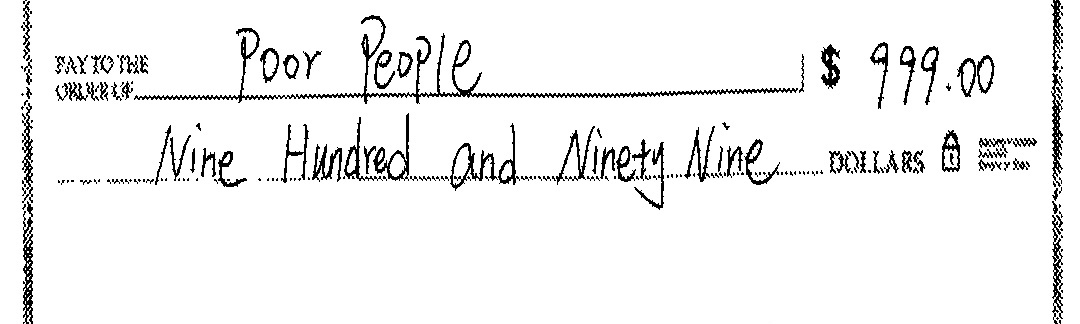 PAY TO THE
ORDER OF Poor People $ 999.00
Nine Hundred and Ninety Nine DOLLARS